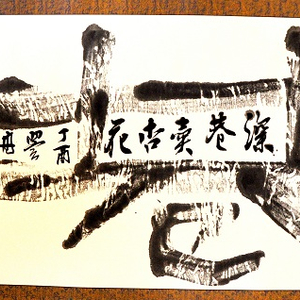 巷
深巷賣杏花
丁酉